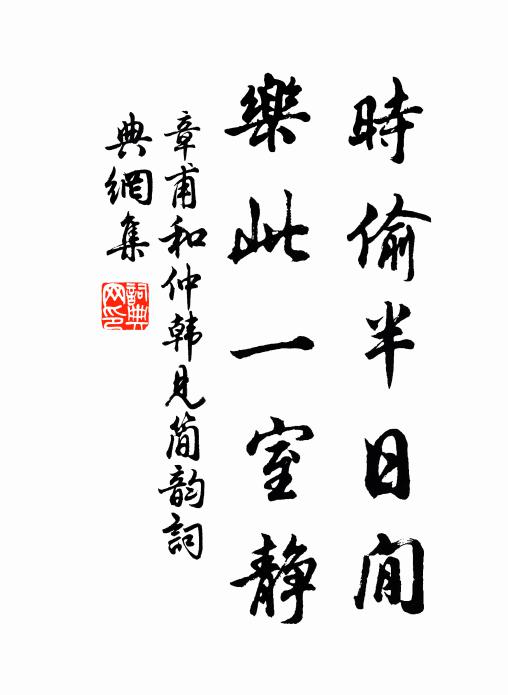 時偷半日閒
樂此一室静
章甫和仲韩见简韵詞
典網集
詞典
网印